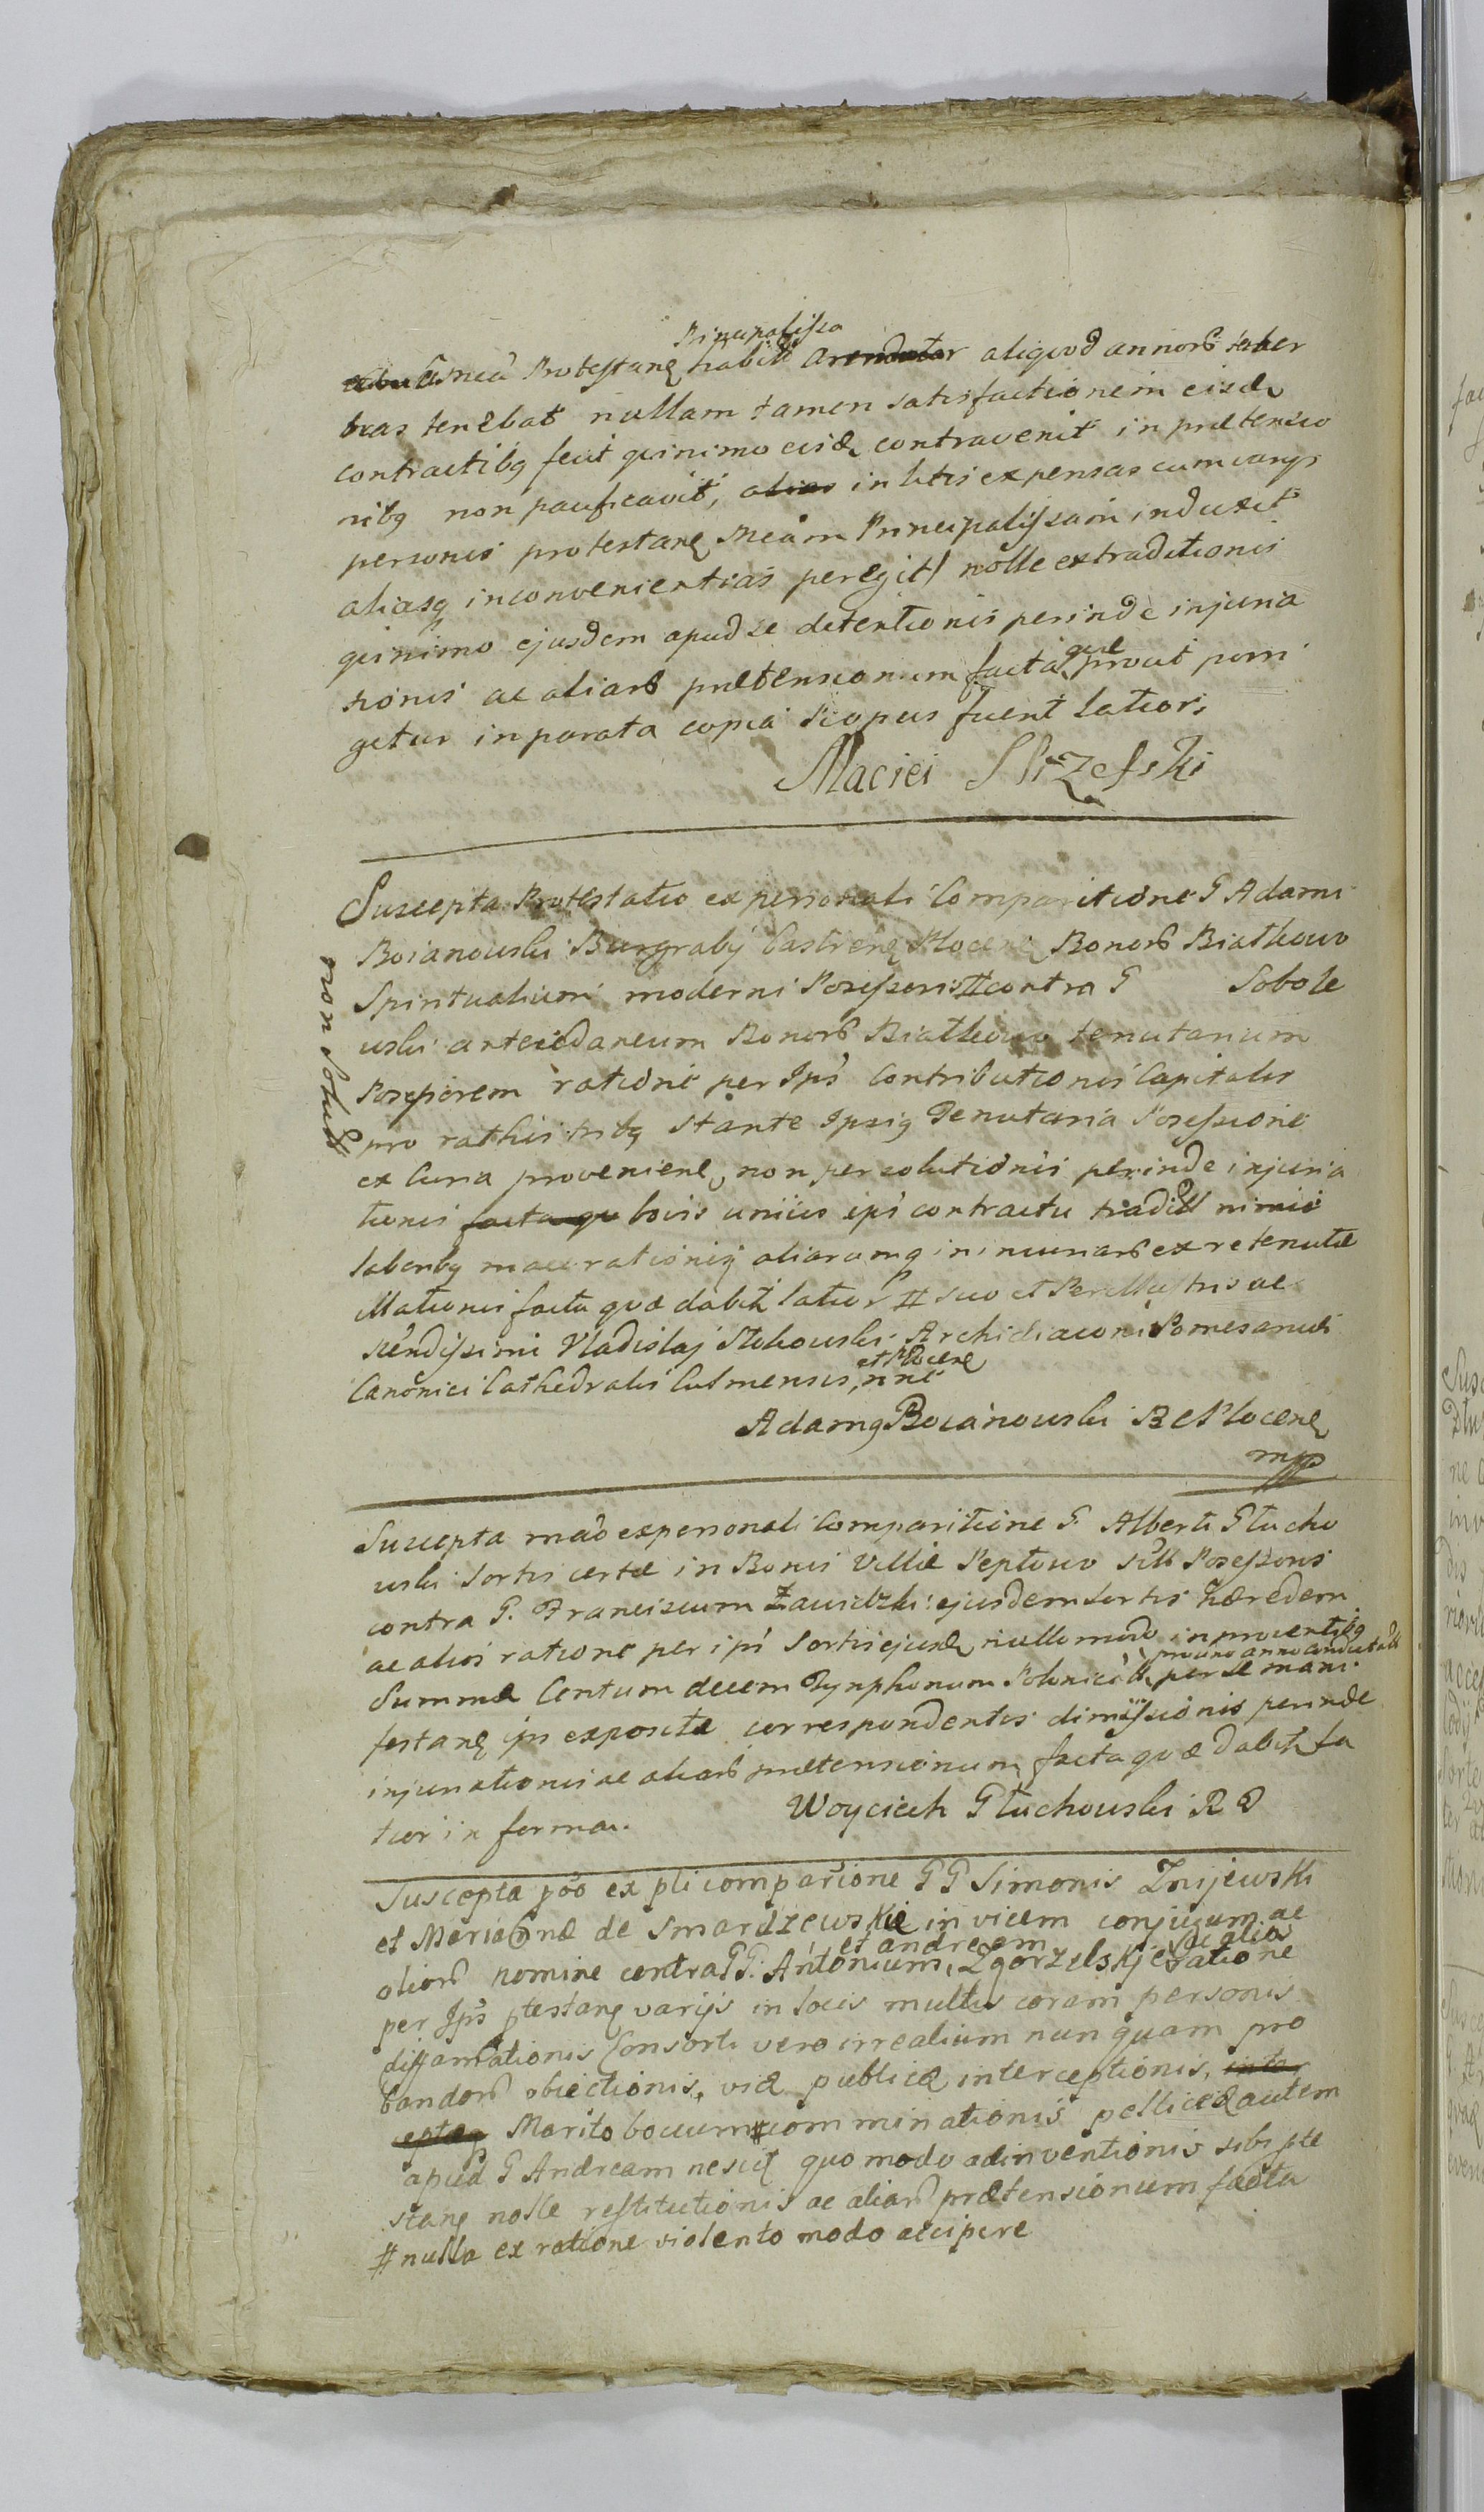 Principalissa
a mea Protestanę habita arendator aliquod annorꝫ taber
bras tenebat nullam tamen satisfactionem eisdē
contractibꝫ fecit quinimo eisdē contravenit in prætensio
nibꝫ non pacificavit, alias in litis expensas cum varys
personis protestanę meam Principalissam induxit
aliasq inconvenientias peregit nolle extraditionis
quinimo ejusdem apud se detentionis perinde injuria
tionis ac aliarꝫ prætensionum facta quæ prout porri
getur in parata copia Scopus fuerit latior.
Maciei Strzefski
Suscepta Protestatio ex personali Comparitione G Adami
Boianowski Burgraby Castrenę Plocenę Bonorꝫ Białkowo
Spiritualium moderni Possessoris # contra G Sobole
wski antecedaneum Bonorꝫ Białkowo tenutarium
Possessorem ratione per Ips Contributionis Capitalis
pro rathis tribꝫ Stante Ipsiꝫ Tenutaria Possessione
ex Curia provenienę non persolutionis perinde injuria
tionis facta quæ bovis unius ipsi contractu tradit nimio
laboribꝫ macerationisꝫ aliarumq injuriarꝫ ex retenutæ
illationis facta quæ dabit latior # suo et Perillustris ac
Rendissimi Vladislaj Stokowski Archidiaconi Pomesaniæ
et Plocenę
Canonici Cathedralis Culmensis, nne
non solut
Adamꝫ Boianowski B C Plocenę
mpp
Suscepta mao ex personali Comparitione G. Alberti Głucho
wski Sortis certæ in Bonis Villæ Peptowo Possessoris
contra G. Franciscum Zawidzki ejusdem Sortis hæredem
ac alios ratione per ips Sortis ejusdē nullo modo in proventiꝫ
pro uno anno conductæ
Summæ Centum decem Tynphonum Polonical. per se mani
festanę ips expositæ correspondentis dimissionis perinde
injuriationis ac aliarꝫ prætensionum facta quæ dabit la
tior in forma.
Woyciech Głuchowski R D
Suscepta pōo ex pli comparione G G Simonis Znijewski
et Mariannæ de Smardzewskie in vicem conjugum ac
et andream ac alios
aliorꝫ nomine contra G G. Antonium, Zgorzelskje ratione
per Ips ptestanę varijs in locis multis coram personis
diffamationis Consorti vero irrealium nunquam pro
bandorꝫ obiectionis, viæ publicæ interceptionis, inter
ceptæq Marito bovum # comminationis pelliceæ autem
apud G Andream nescit quo modo adinventionis sibi pte
stanę nolle restitutionis ac aliarꝫ prætensionum facta
# nulla ex ratione violento modo accipere